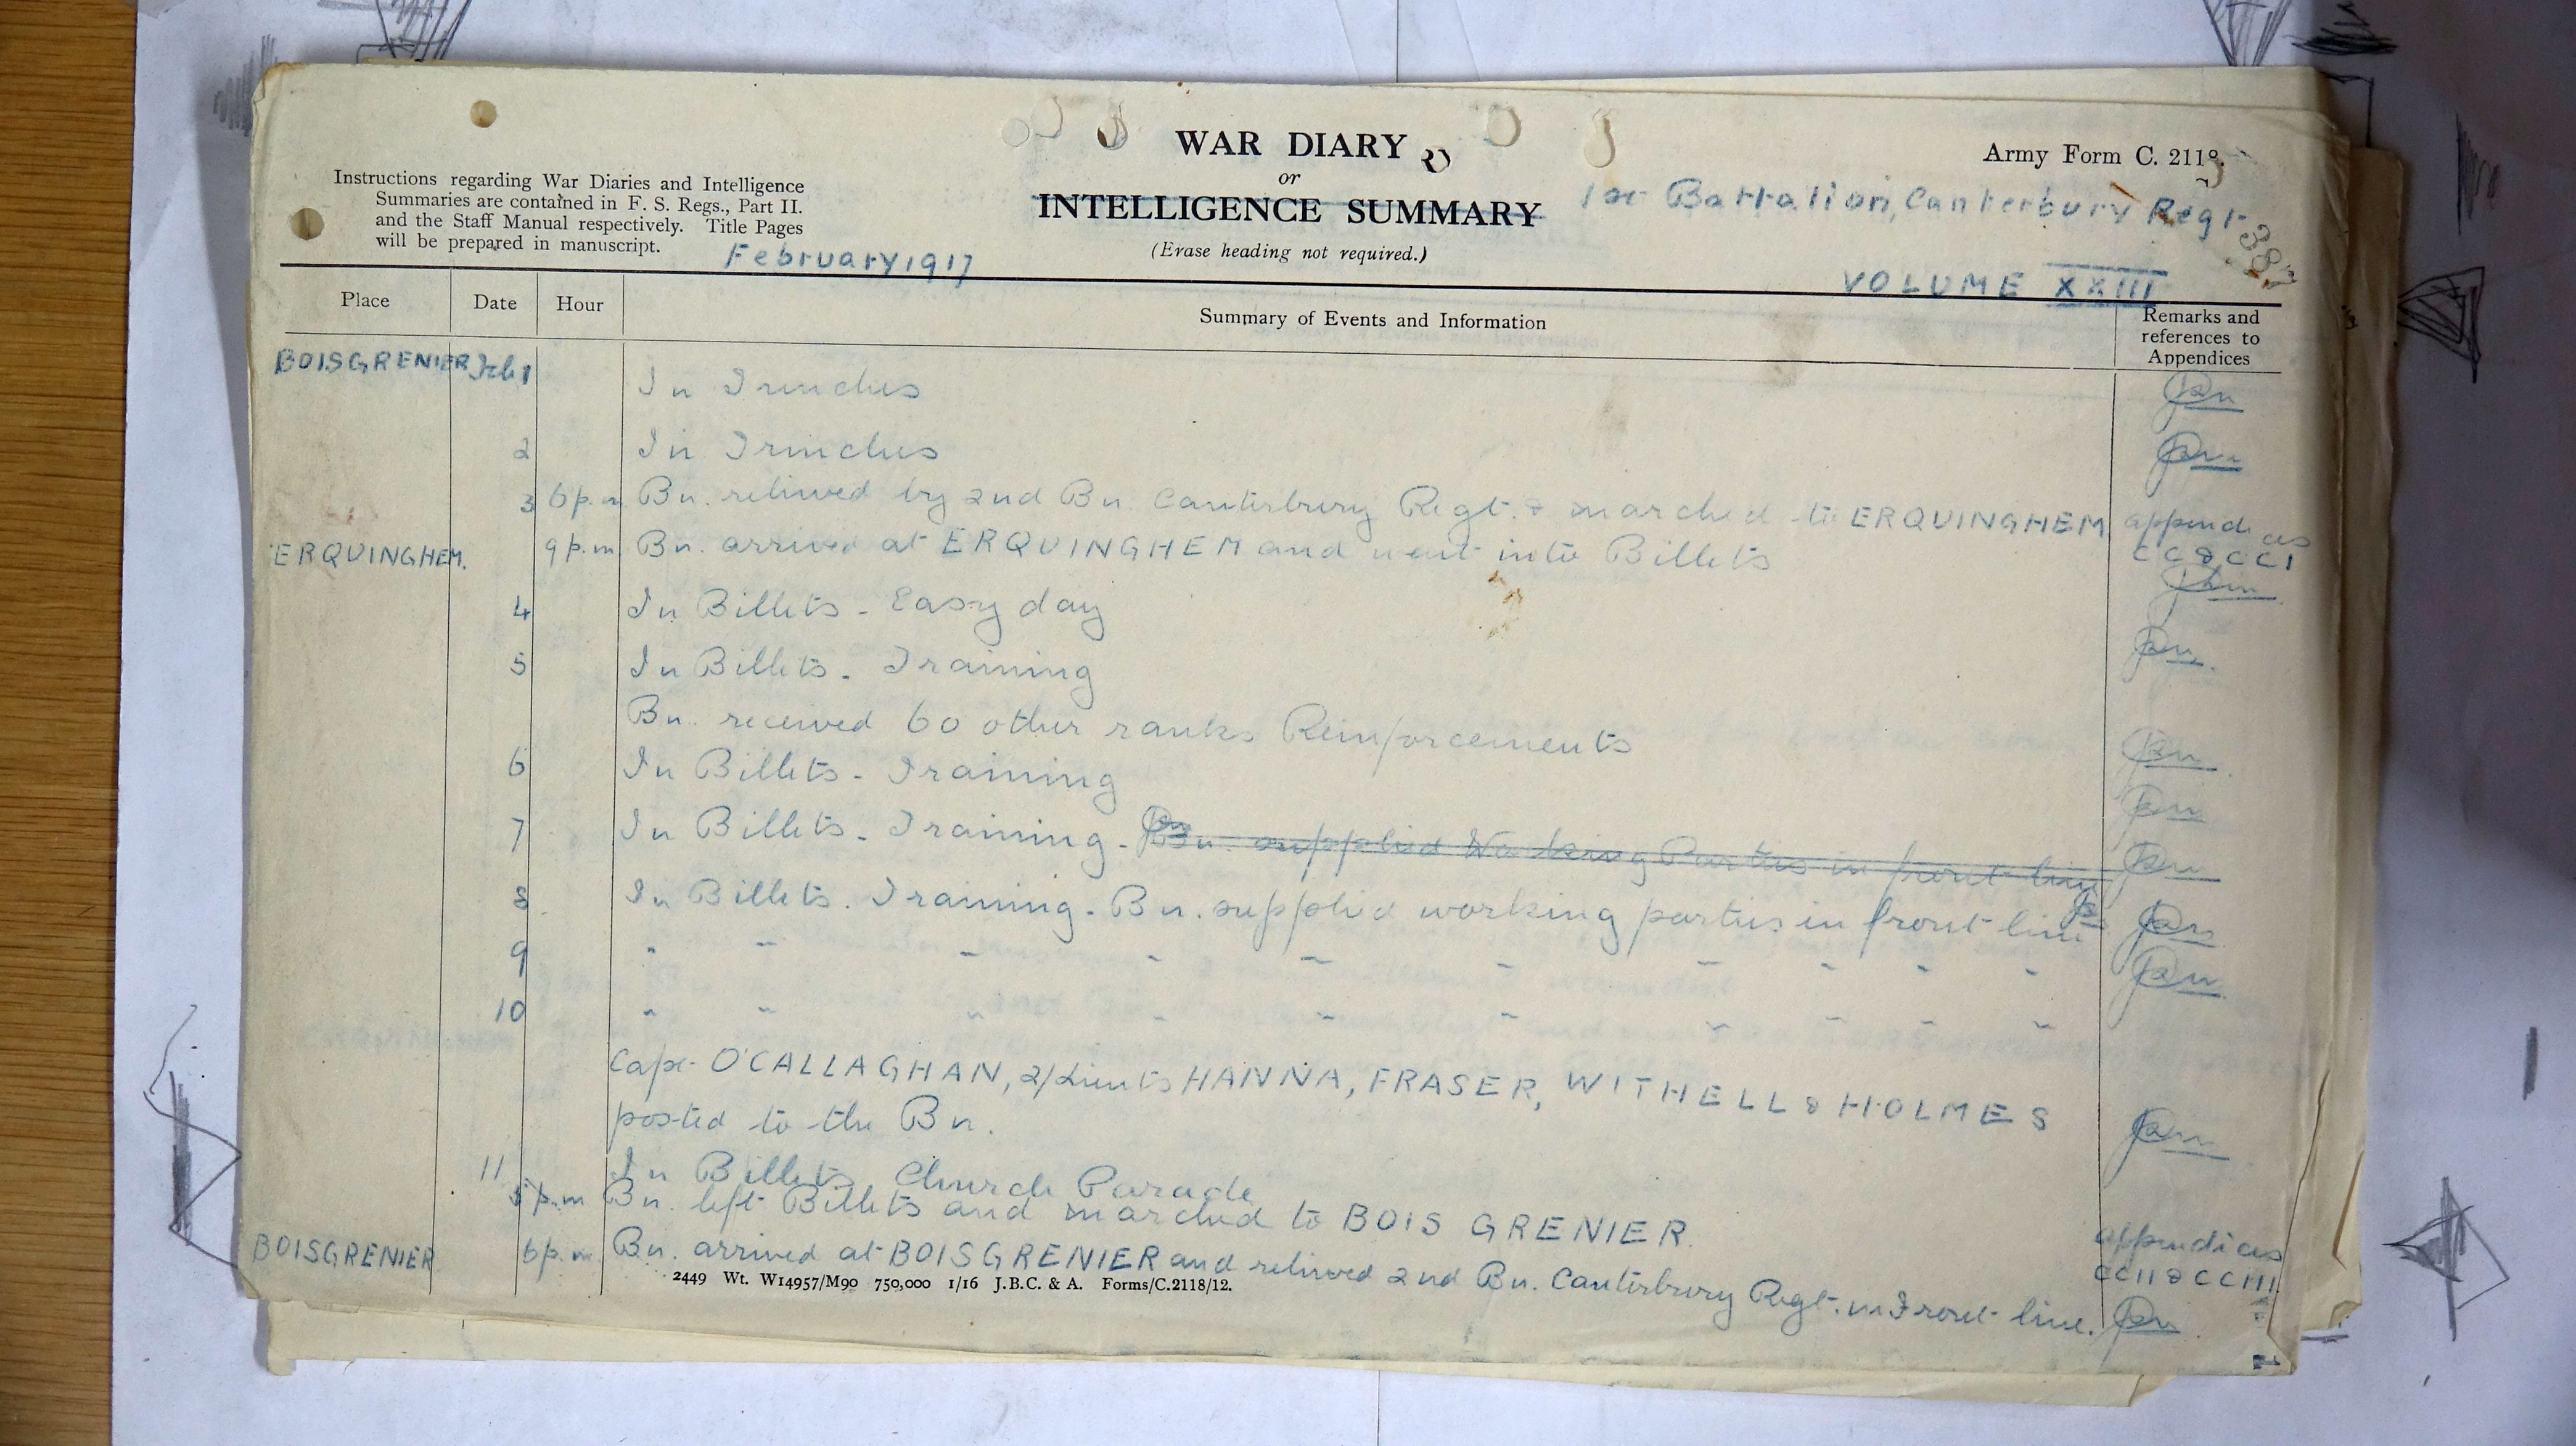 WAR DIARY
or
INTELLIGENCE SUMMARY
(Erase heading not required.)
Army Form C. 2118.
Instructions regarding War Diaries and Intelligence
Summaries are contained in F. S. Regs., Part II.
and the Staff Manual respectively. Title Pages
will be prepared in manuscript.
February 1917
1st Battalion, Canterbury Regt.
VOLUME XXIII
Place Date Hour Summary of Events and Information Remarks and references to Appendices
BOISGRENIER Feb 1 In Trenches
2 In Trenches
3 6 p.m Bn. relieved by 2nd Bn. Canterbury Regt. & marched to ERQUINGHEM appendices
ERQUINGHEM. 9 p.m Bn. arrived at ERQUINGHEM and went into Billets CC & CCI
4 In Billets - Easy day
5 In Billets - Training
Bn. received 60 other ranks Reinforcements
6 In Billets - Training
7 In Billets - Training - Bn. supplied Working Parties in front line
8 In Billets. Training - Bn. supplied working parties in front line
9 " " " " " " " " " "
10 " " " " " " " " " "
Capt O'CALLAGHAN, 2/Lieuts HANNA, FRASER, WITHELL & HOLMES
posted to the Bn.
11 In Billets Church Parade
5 p.m Bn. left Billets and marched to BOIS GRENIER.
BOISGRENIER 6 p.m Bn. arrived at BOISGRENIER and relieved 2nd Bn. Canterbury Regt. in Front line. appendices
CCII & CCIII
2449 Wt. W14957/M90 750,000 1/16 J.B.C. & A. Forms/C.2118/12.
1